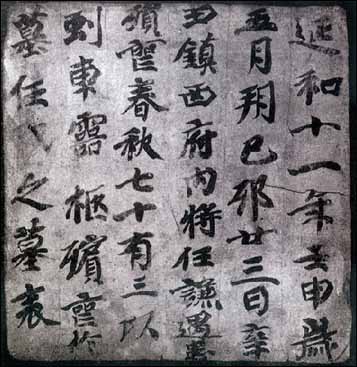 延和十一年壬申歲
五月朔己卯廿三日辛
丑鎮西府內將任謙遇患
殞喪春秋七十有三以
車靈柩殯喪於
墓任氏之墓表